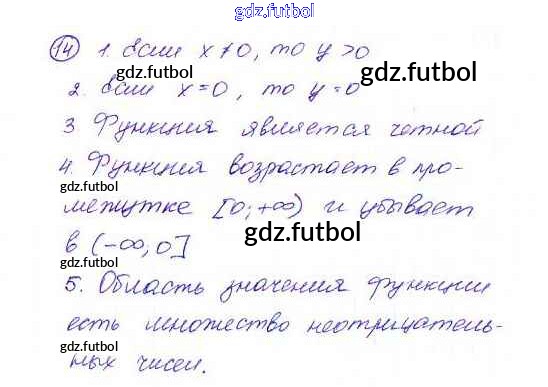 gdz.futbol
14 1. Если x ≠ 0, то y > 0
gdz.futbol
gdz.futbol
2. Если x = 0, то y = 0
3 Функция является четной
4. Функция возрастает в про-
gdz.futbol
межутке [0; +∞) и убывает
gdz.futbol
в (-∞; 0]
gdz.futbol
5. Область значения функции
есть множество неотрицатель-
gdz.futbol
ных чисел.